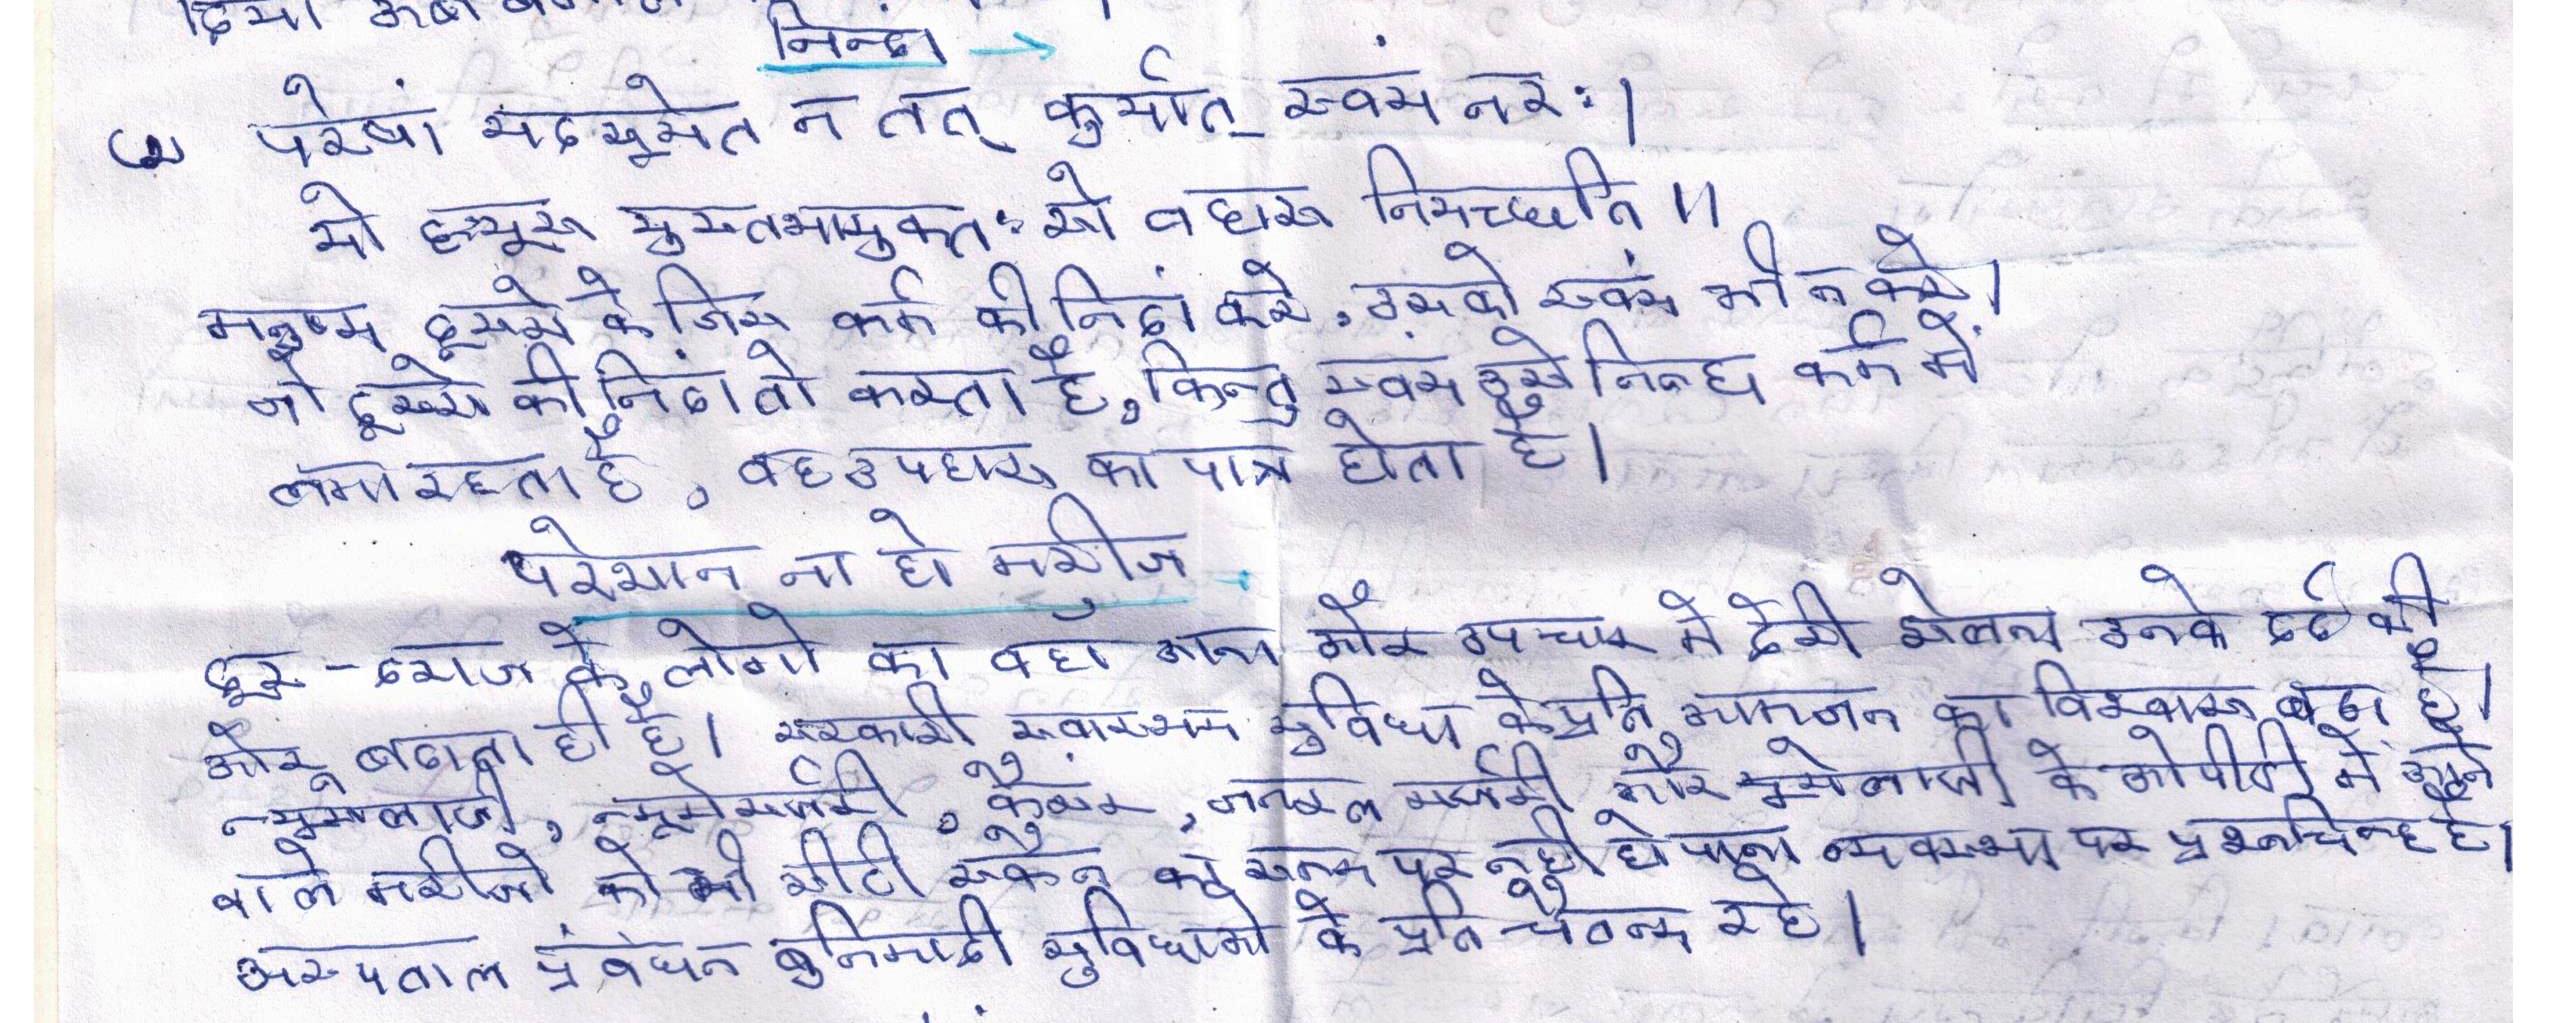 निन्दा →
परेषां यदसूयेत न तत् कुर्यात् स्वयं नरः।
यो ह्यसूयुस्तथायुक्तः सो वहास नियच्छति॥
मनुष्य दूसरे के जिस कर्म की निदां करे, उसको स्वयं भी न करे।
जो दूसरे की निंदा तो करता है, किन्तु स्वयं उसे निन्द्य कर्म में
लगा रहता है, वह उपहास का पात्र होता है।
परेशान ना हो मरीज →
दूर-दराज के लोगो का वहाँ आना और उपचार मे देरी झेलना उनके दर्द को
और बढाता ही है। सरकारी स्वास्थय सुविधा के प्रति आमजन का विश्वास बढा है।
न्यूरोलाजी, न्यूरोसर्जरी, कैंसर, जनरल सर्जरी और यूरोलाजी के ओपीडी मे आने
वाले मरीजो को भी सीटी स्कैन का समय पर नही हो पाना व्यवस्था पर प्रश्नचिन्ह है।
अस्पताल प्रंबधन बुनियादी सुविधाओ के प्रति चैतन्य रहे।